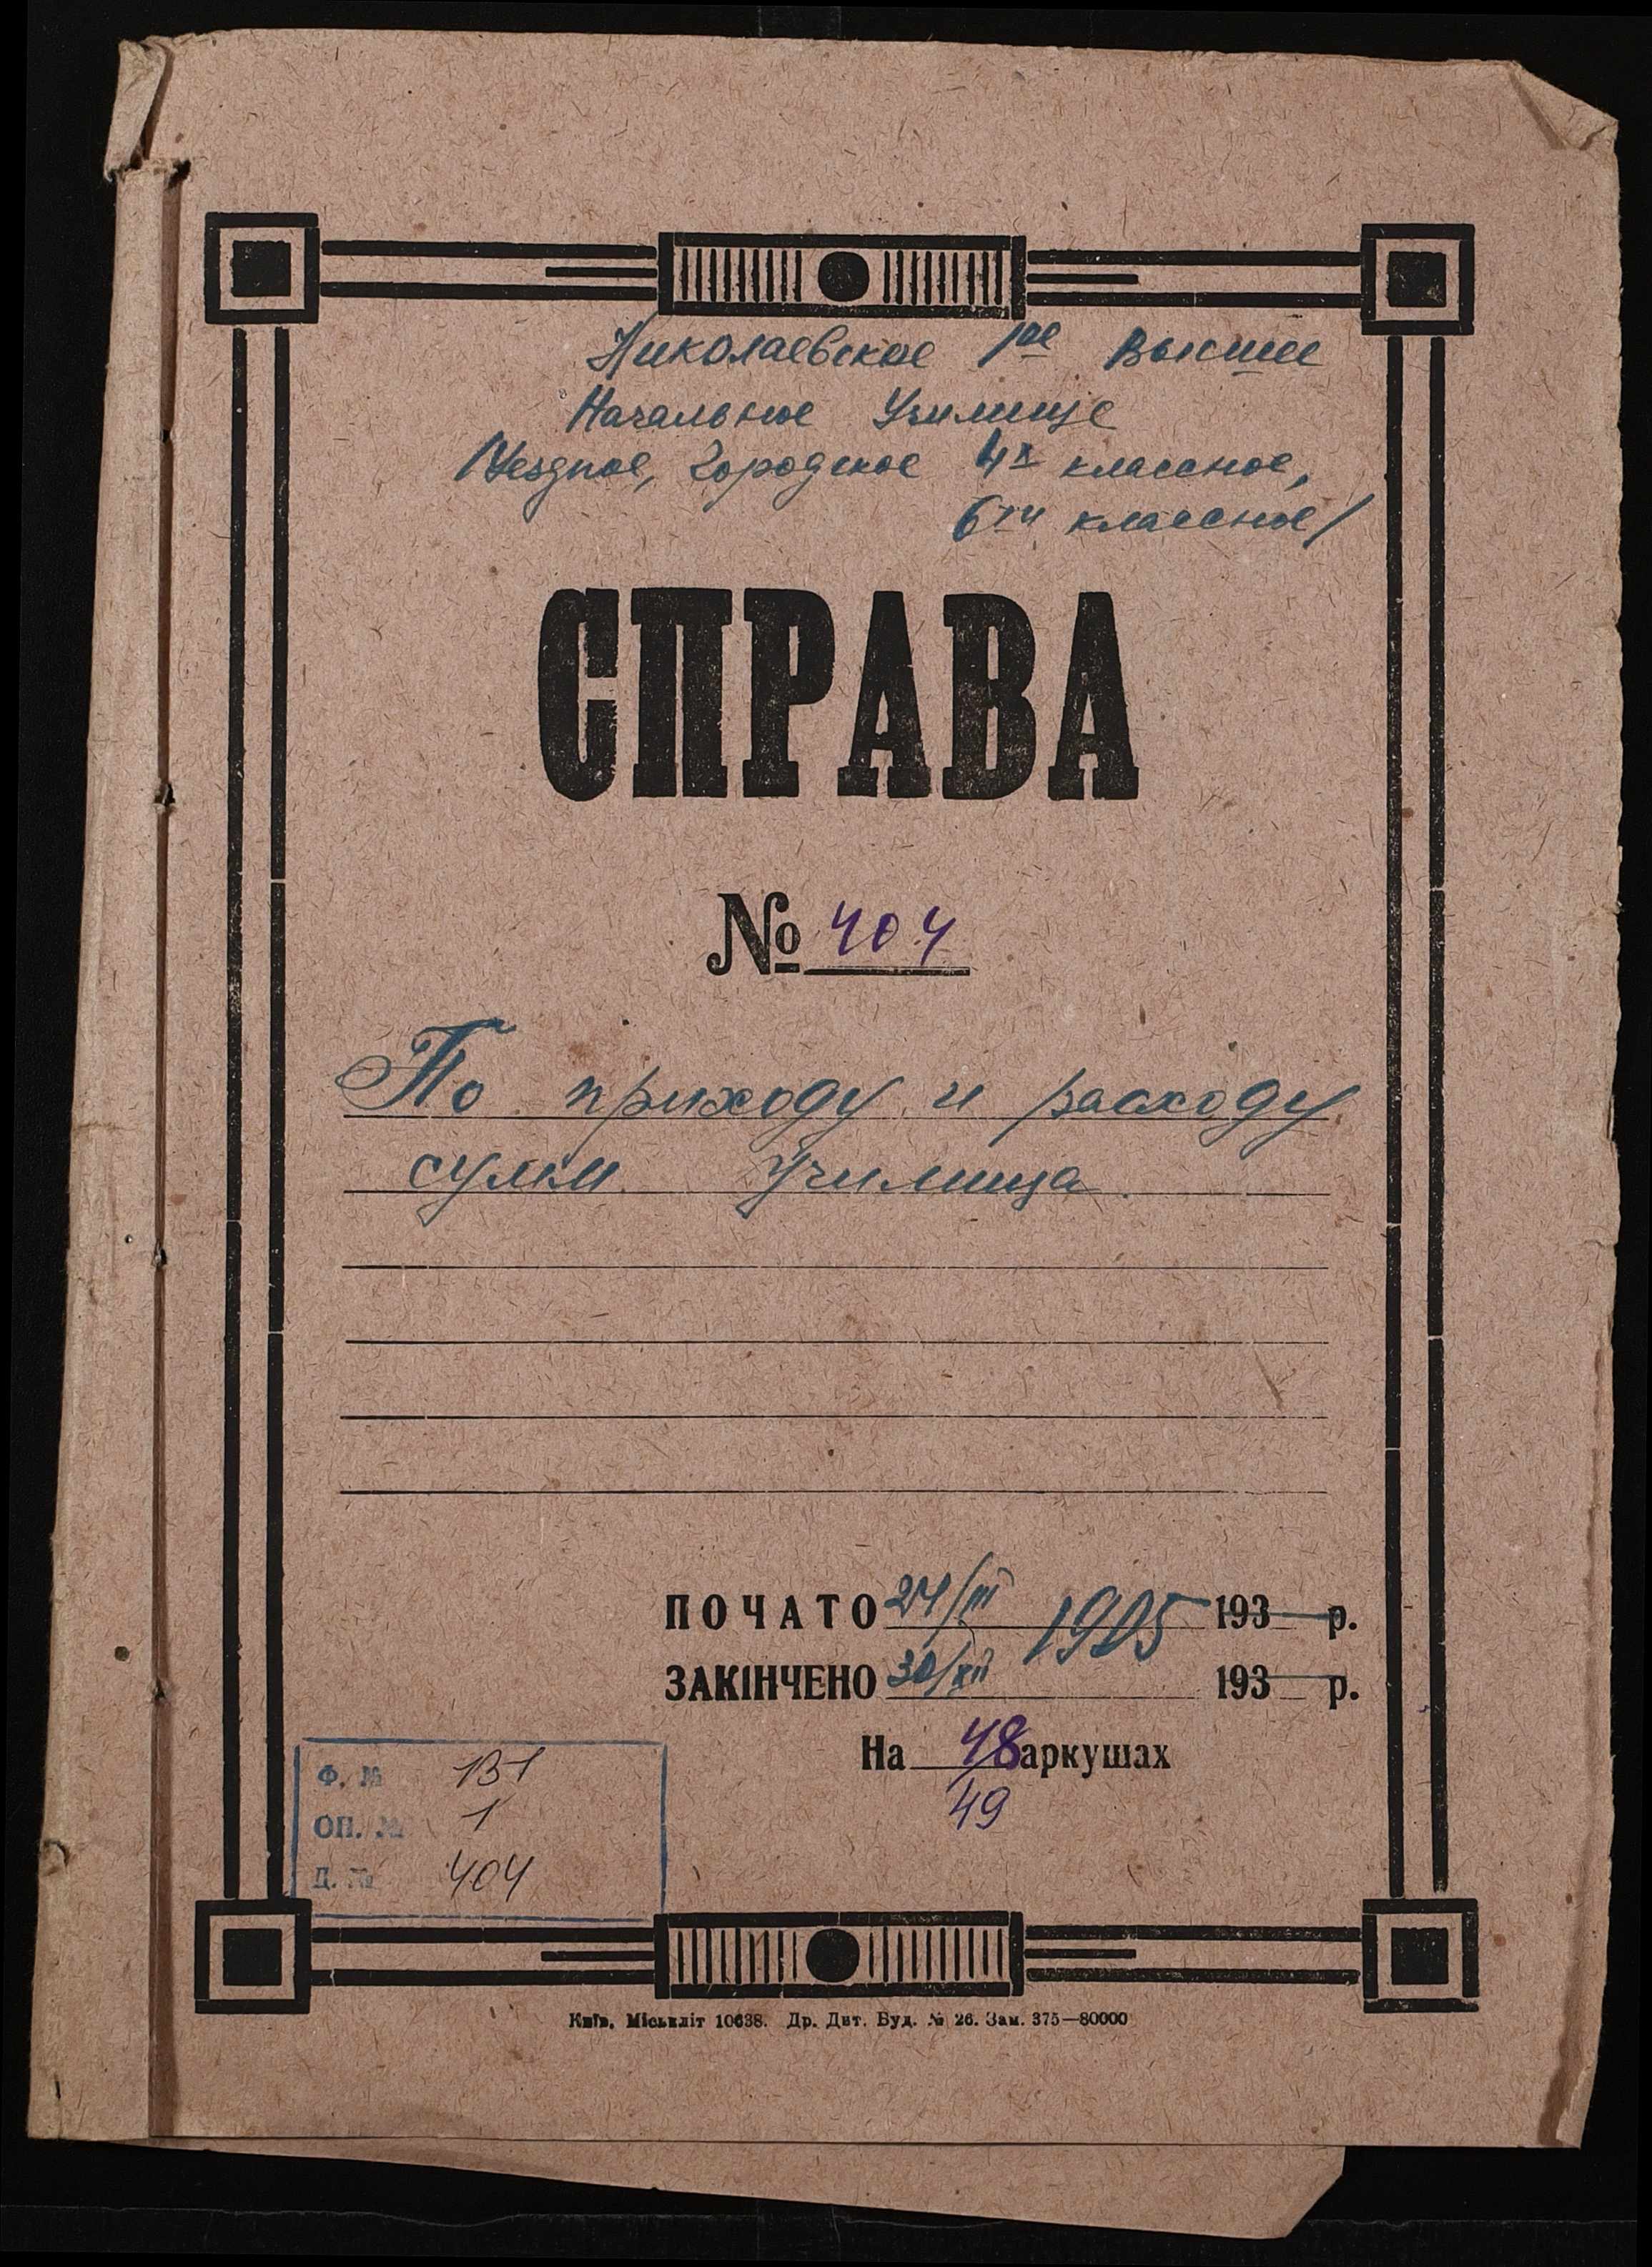 Николаевское 1ое Высшее
Начальное Училище
/Уездное, Городское 4х классное,
6ти классное/
СПРАВА
№ 404
По приходу и расходу
сумм училища.
ПОЧАТО 24/III 1905 193 р.
ЗАКІНЧЕНО 30/XII 193 р.
На 48 аркушах
49
Ф. № 131
ОП. № 1
Д. № 404
Київ, Міськліт 10638. Др. Дит. Буд. № 26. Зам. 375—80000